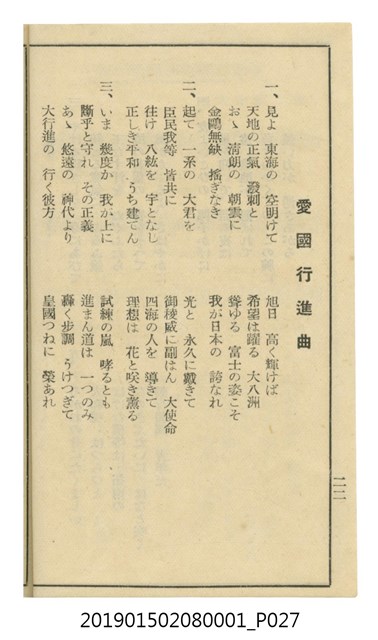 愛國行進曲
一、見よ 東海の 空明けて 旭日 高く輝けば
天地の正氣 潑剌と 希望は躍る 大八洲
おゝ 淸朗の 朝雲に 聳ゆる 富士の姿こそ
金甌無缺 搖ぎなき 我が日本の 誇なれ
二、起て 一系の 大君を 光と 永久に戴きて
臣民我等 皆共に 御稜威に副はん 大使命
往け 八紘を 宇となし 四海の人を 導きて
正しき平和 うち建てん 理想は 花と咲き薫る
三、いま 幾度か 我が上に 試練の嵐 哮るとも
斷乎と守れ その正義 進まん道は 一つのみ
あゝ 悠遠の 神代より 轟く步調 うけつぎて
大行進の 行く彼方 皇國つねに 榮あれ
201901502080001_P027